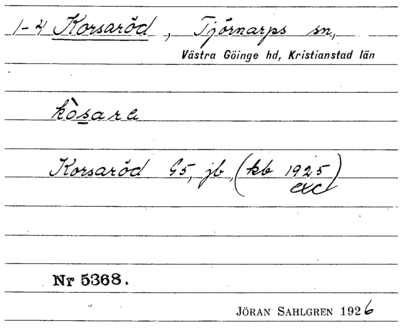 1-4 Korsaröd, Tjörnarps sn,
Västra Göinge hd, Kristianstad län
kòsarö
Korsaröd G5, jb, (kb 1925)
exc
Nr 5368.
JÖRAN SAHLGREN 1926